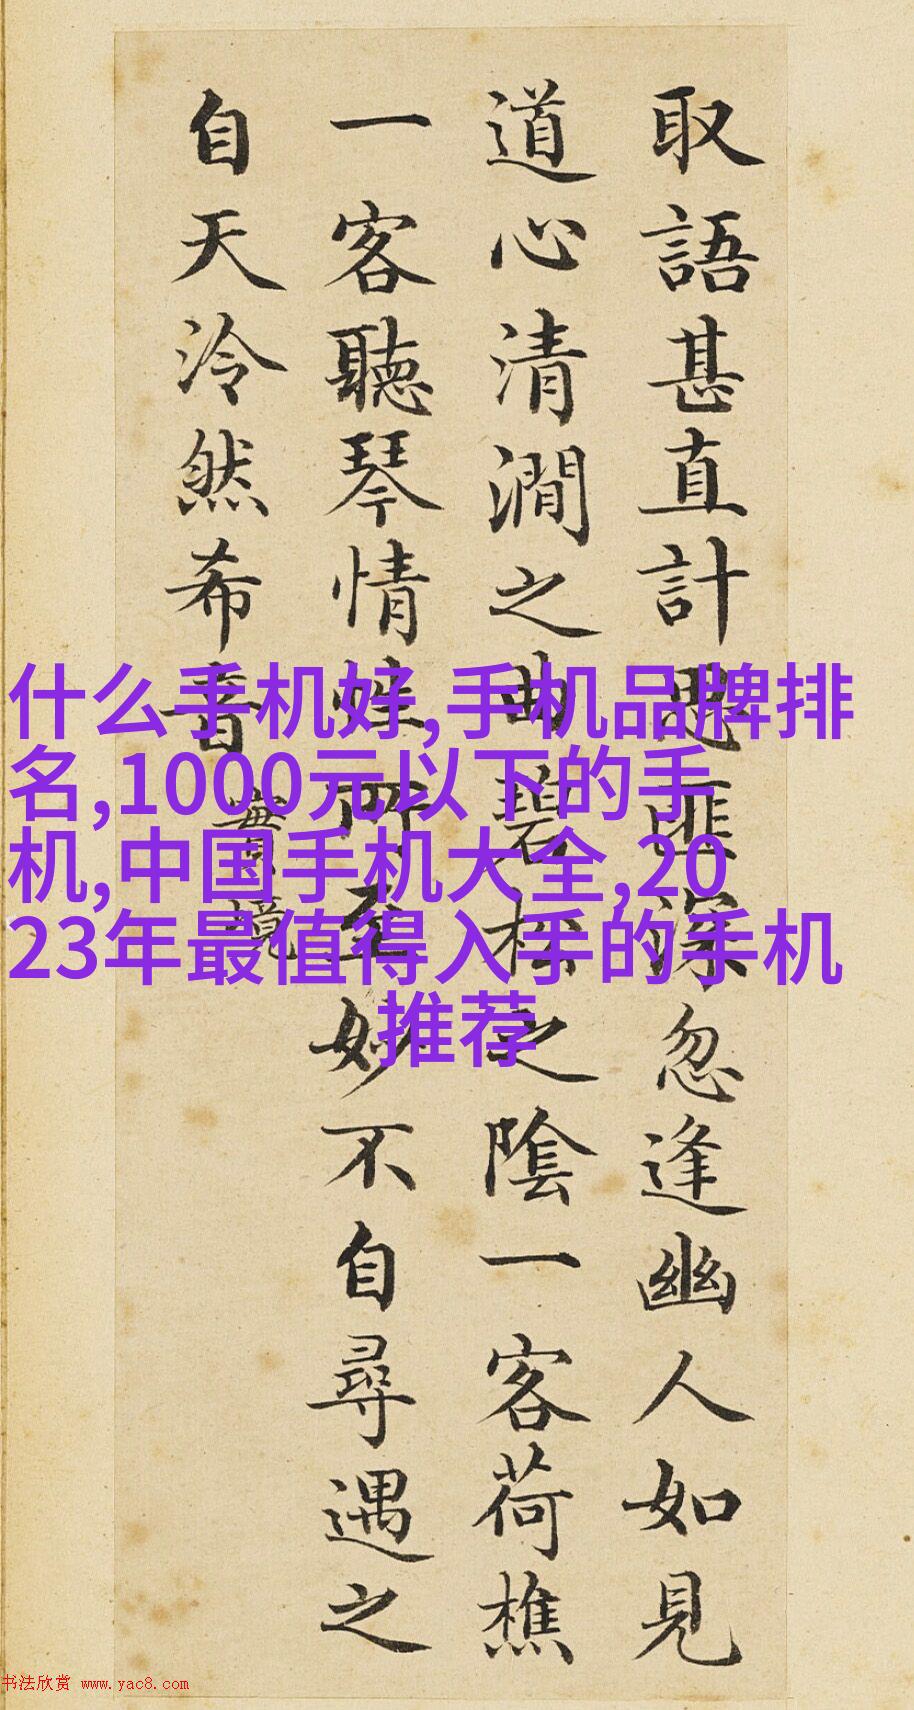 取語甚直計思匪深忽逢幽人如見
道心清澗之曲碧松之陰一客荷樵
一客聽琴情性所至妙不自尋遇之
自天泠然希音
實境
什么手机好,手机品牌排
名,1000元以下的手
机,中国手机大全,20
23年最值得入手的手机
推荐
书法欣赏 www.yac8.com